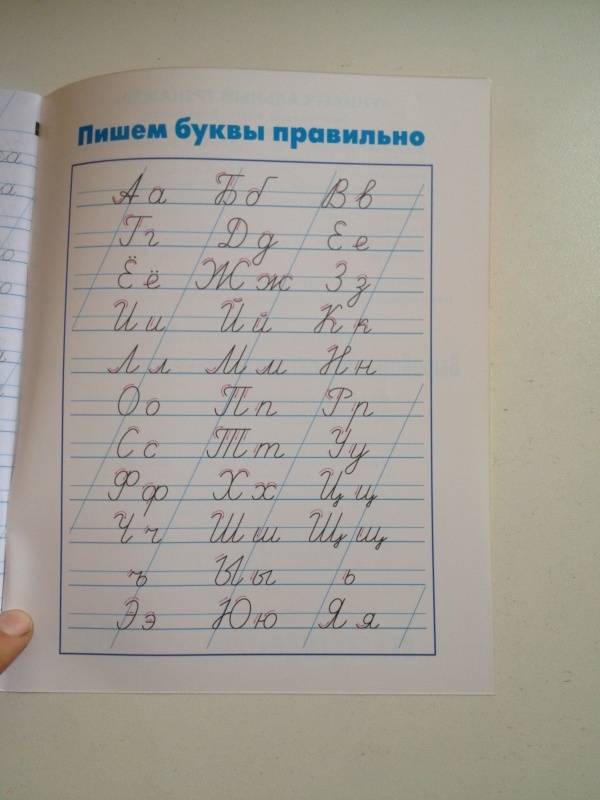 Пишем буквы правильно
Аа Бб Вв
Гг Дд Ее
Ёё Жж Зз
Ии Йй Кк
Лл Мм Нн
Оо Пп Рр
Сс Тт Уу
Фф Хх Цц
Чч Шш Щщ
ъ Ыы ь
Ээ Юю Яя